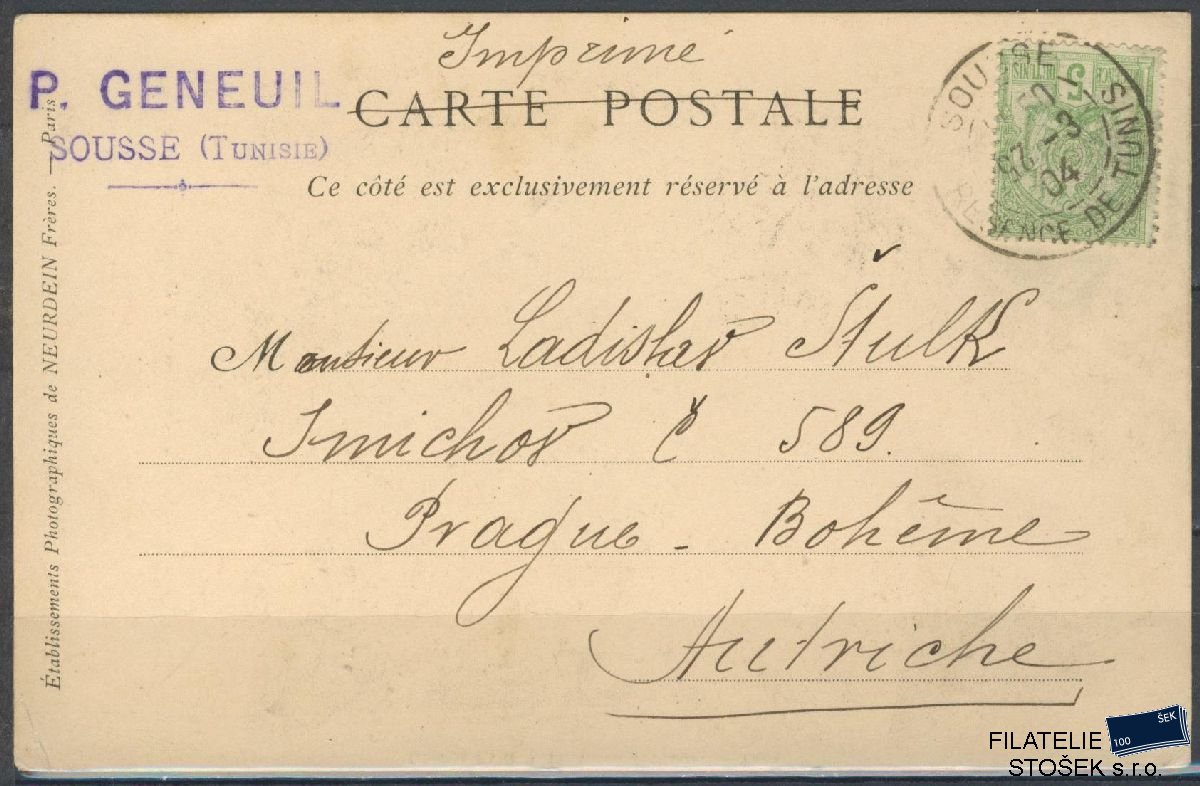 Imprimé
P. GENEUIL
SOUSSE (TUNISIE)
CARTE POSTALE
Ce côté est exclusivement réservé à l'adresse
SOUSSE
RÉGENCE DE TUNIS
-3
04
5
Monsieur Ladislav Štulk
Smichov č 589.
Prague - Bohême
Autriche
Établissements Photographiques de NEURDEIN Frères. — Paris
FILATELIE
STOŠEK s.r.o.
100
ŠEK